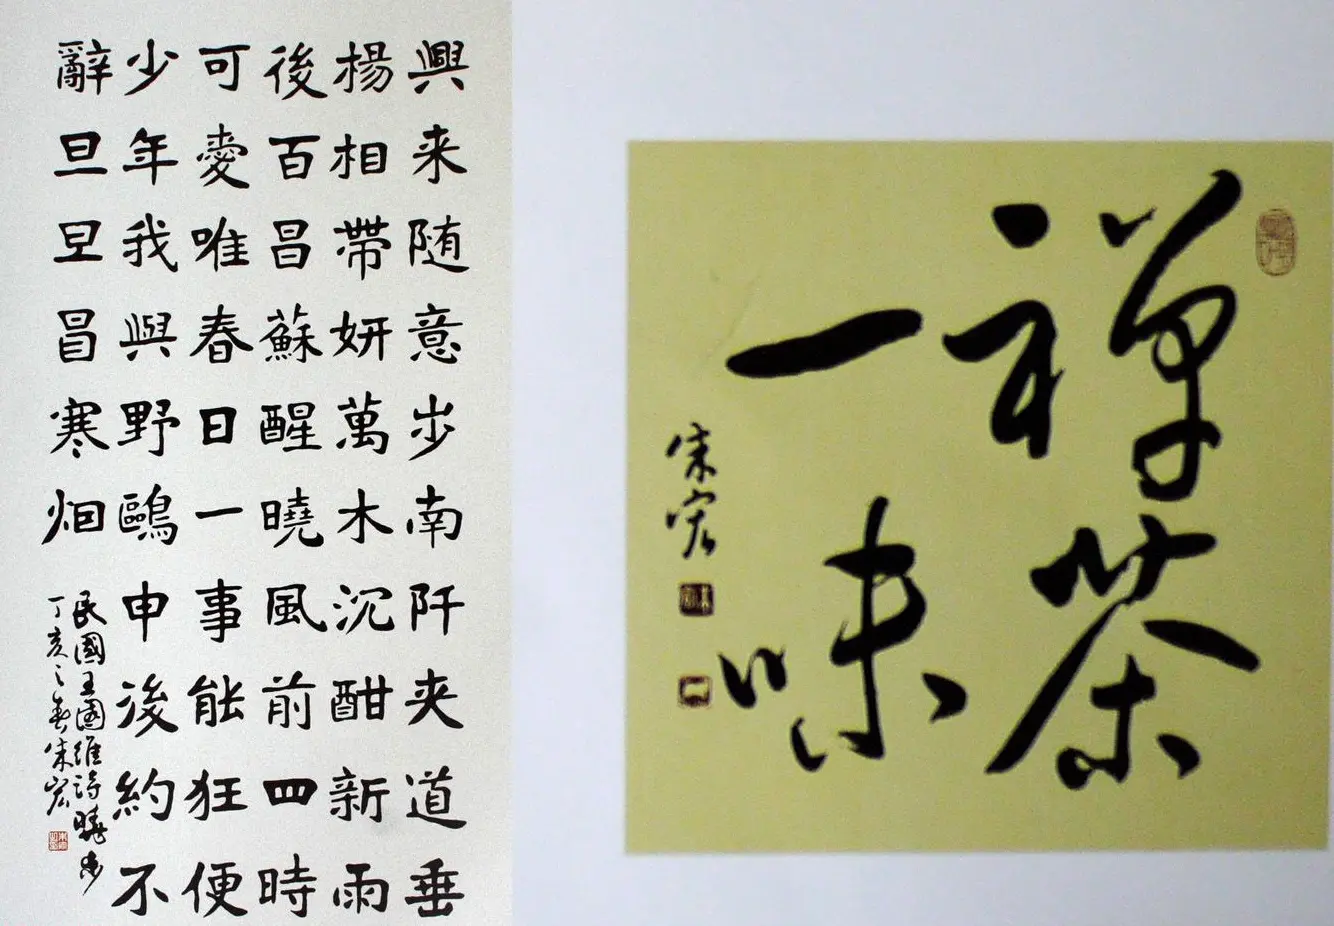 興来随意步南阡夹道垂
楊相帶妍萬木沉酣新雨
後百昌蘇醒曉風前四時
可愛唯春日一事能狂便
少年我與野鷗申後約不
辭旦旦冒寒烟
民國王國維詩曉步
丁亥之春朱宏
禪茶
一味
朱宏